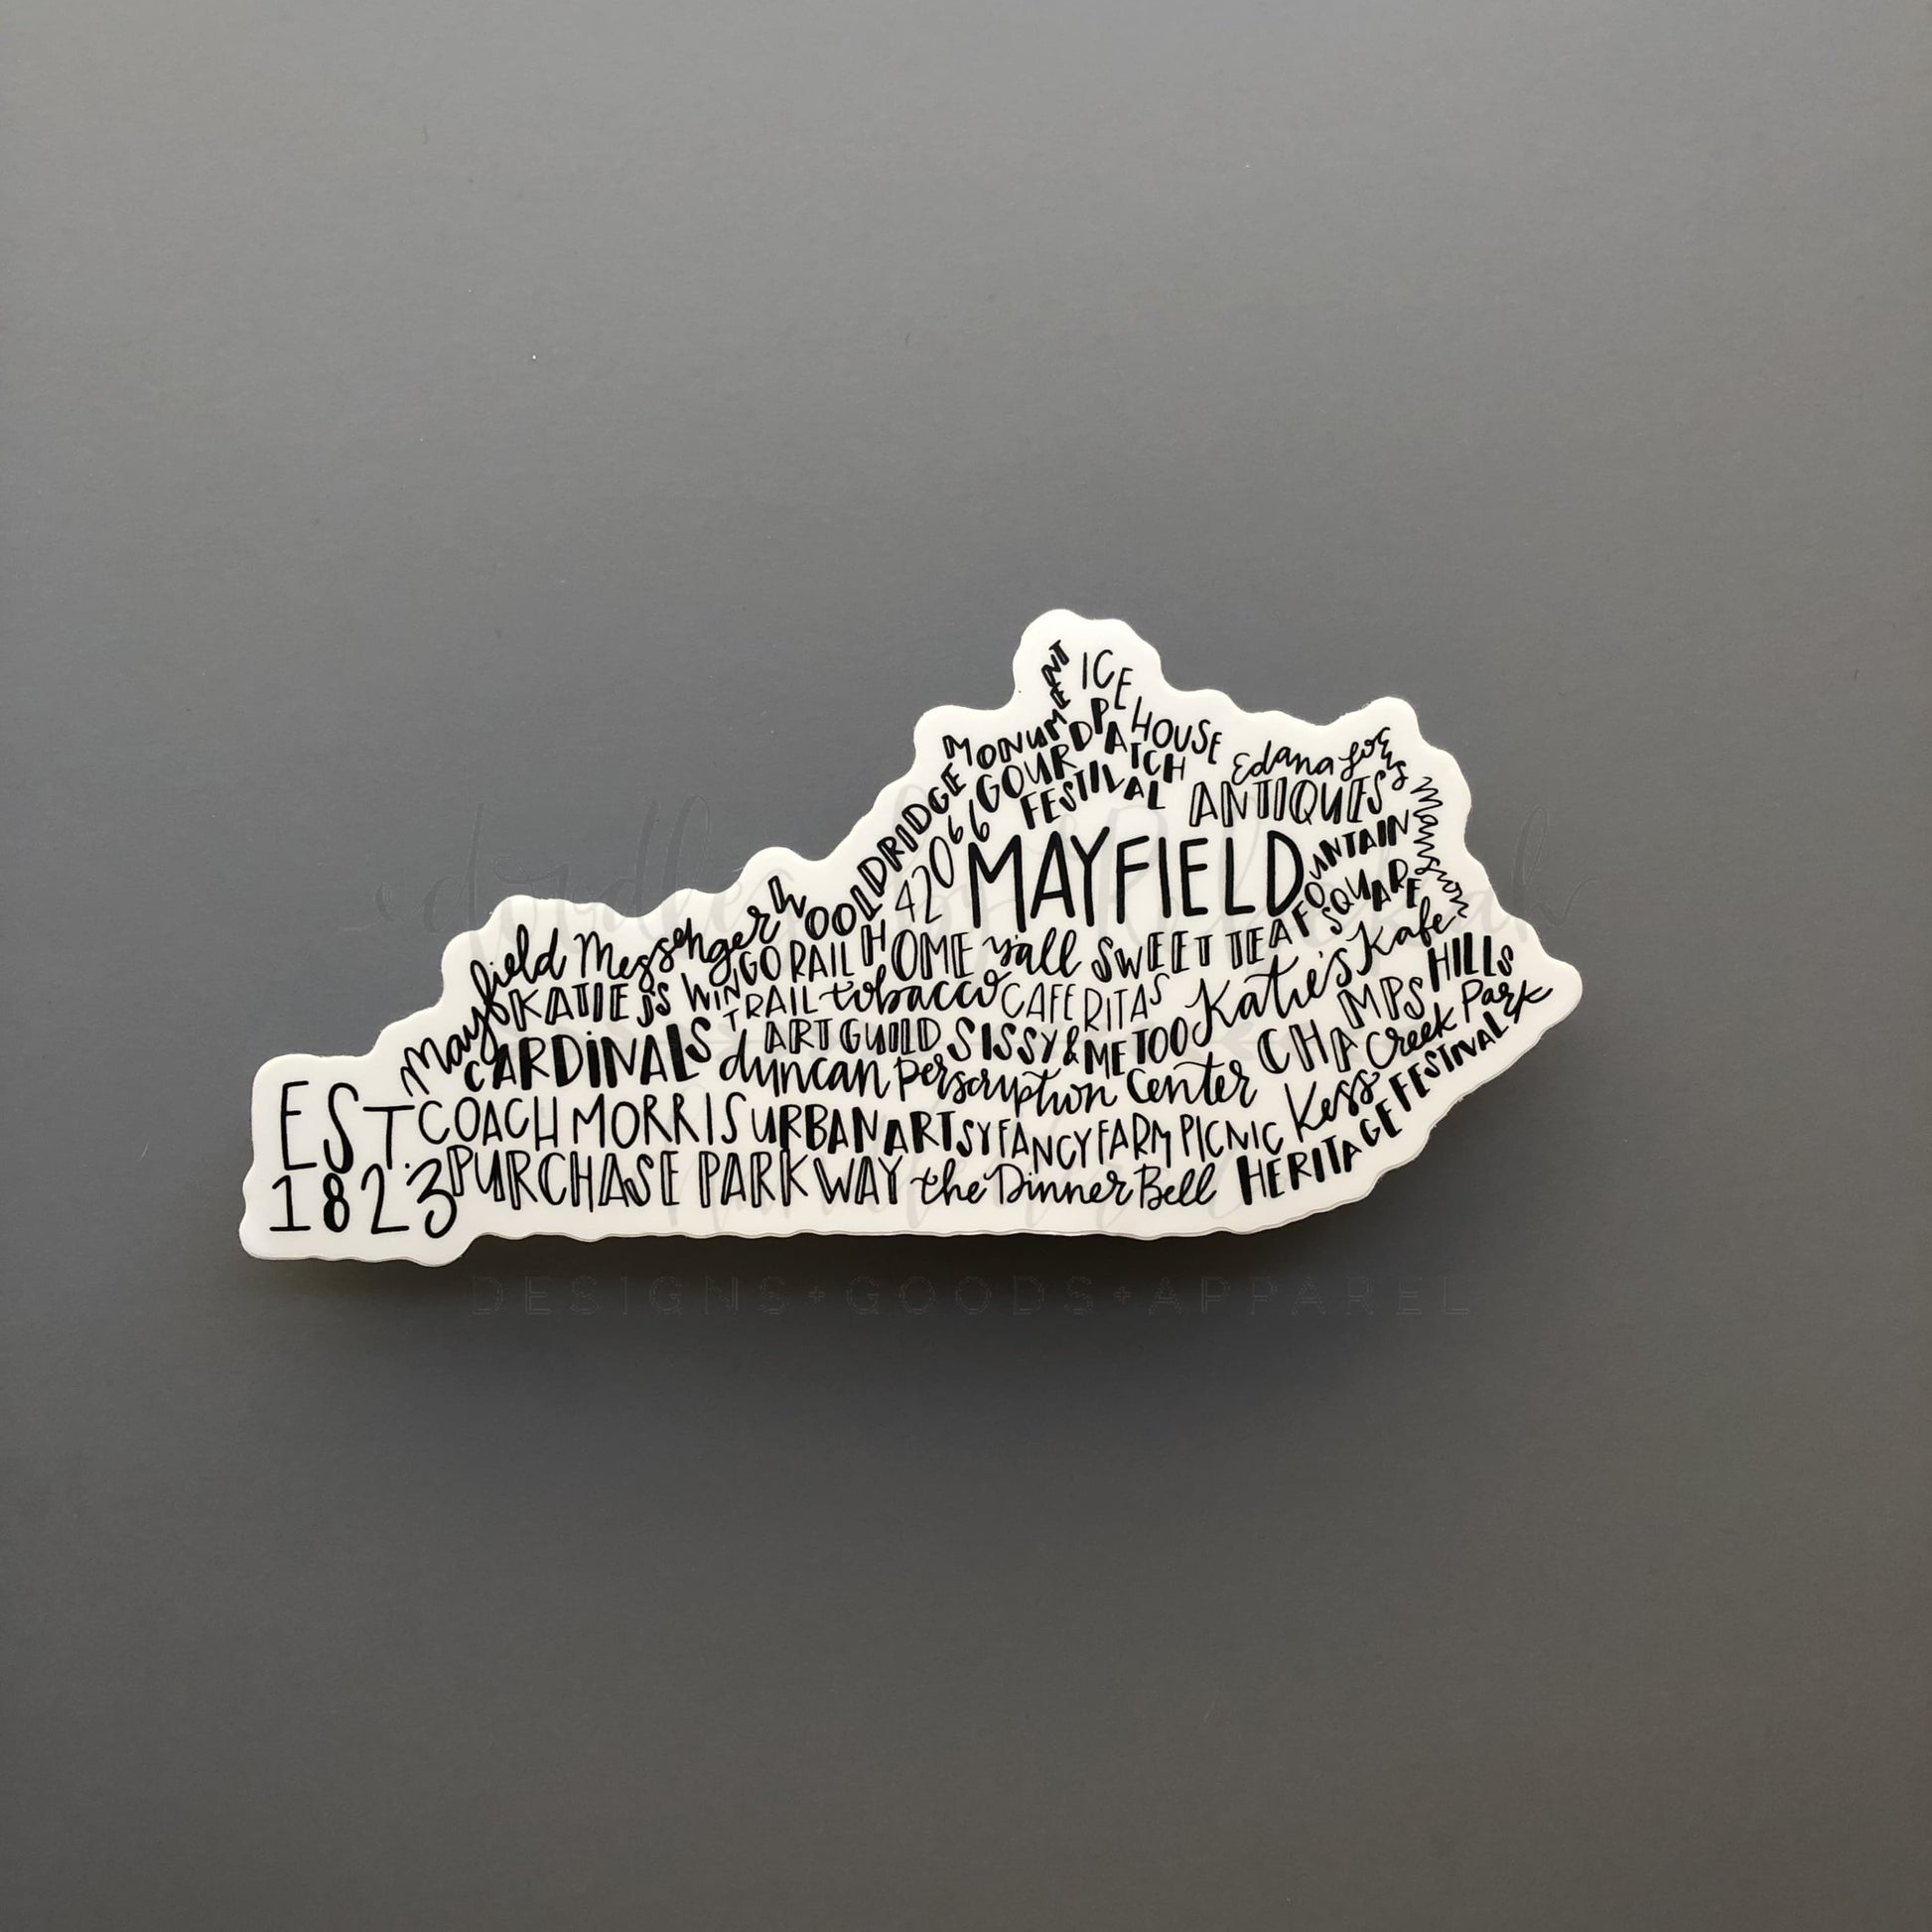 MONUMENT
ICE HOUSE
GOURD PATCH
FESTIVAL
Edana Locus Mansion
ANTIQUES
WOOLDRIDGE
42066
MAYFIELD
FOUNTAIN
SQUARE
Mayfield Messenger
KATIE J'S
WINGO RAIL
TRAIL
HOME
y'all
SWEET TEA
Katie's Kafe
tobacco
CAFE RITAS
CHAMPS HILLS
CARDINALS
ART GUILD
SISSY & ME TOO
duncan Perscription Center
Kess Creek Park
EST.
1823
COACH MORRIS
URBAN ARTSY
FANCY FARM PICNIC
PURCHASE PARKWAY
the Dinner Bell
HERITAGE FESTIVAL
doodles by Rebekah
DESIGNS+GOODS+APPAREL